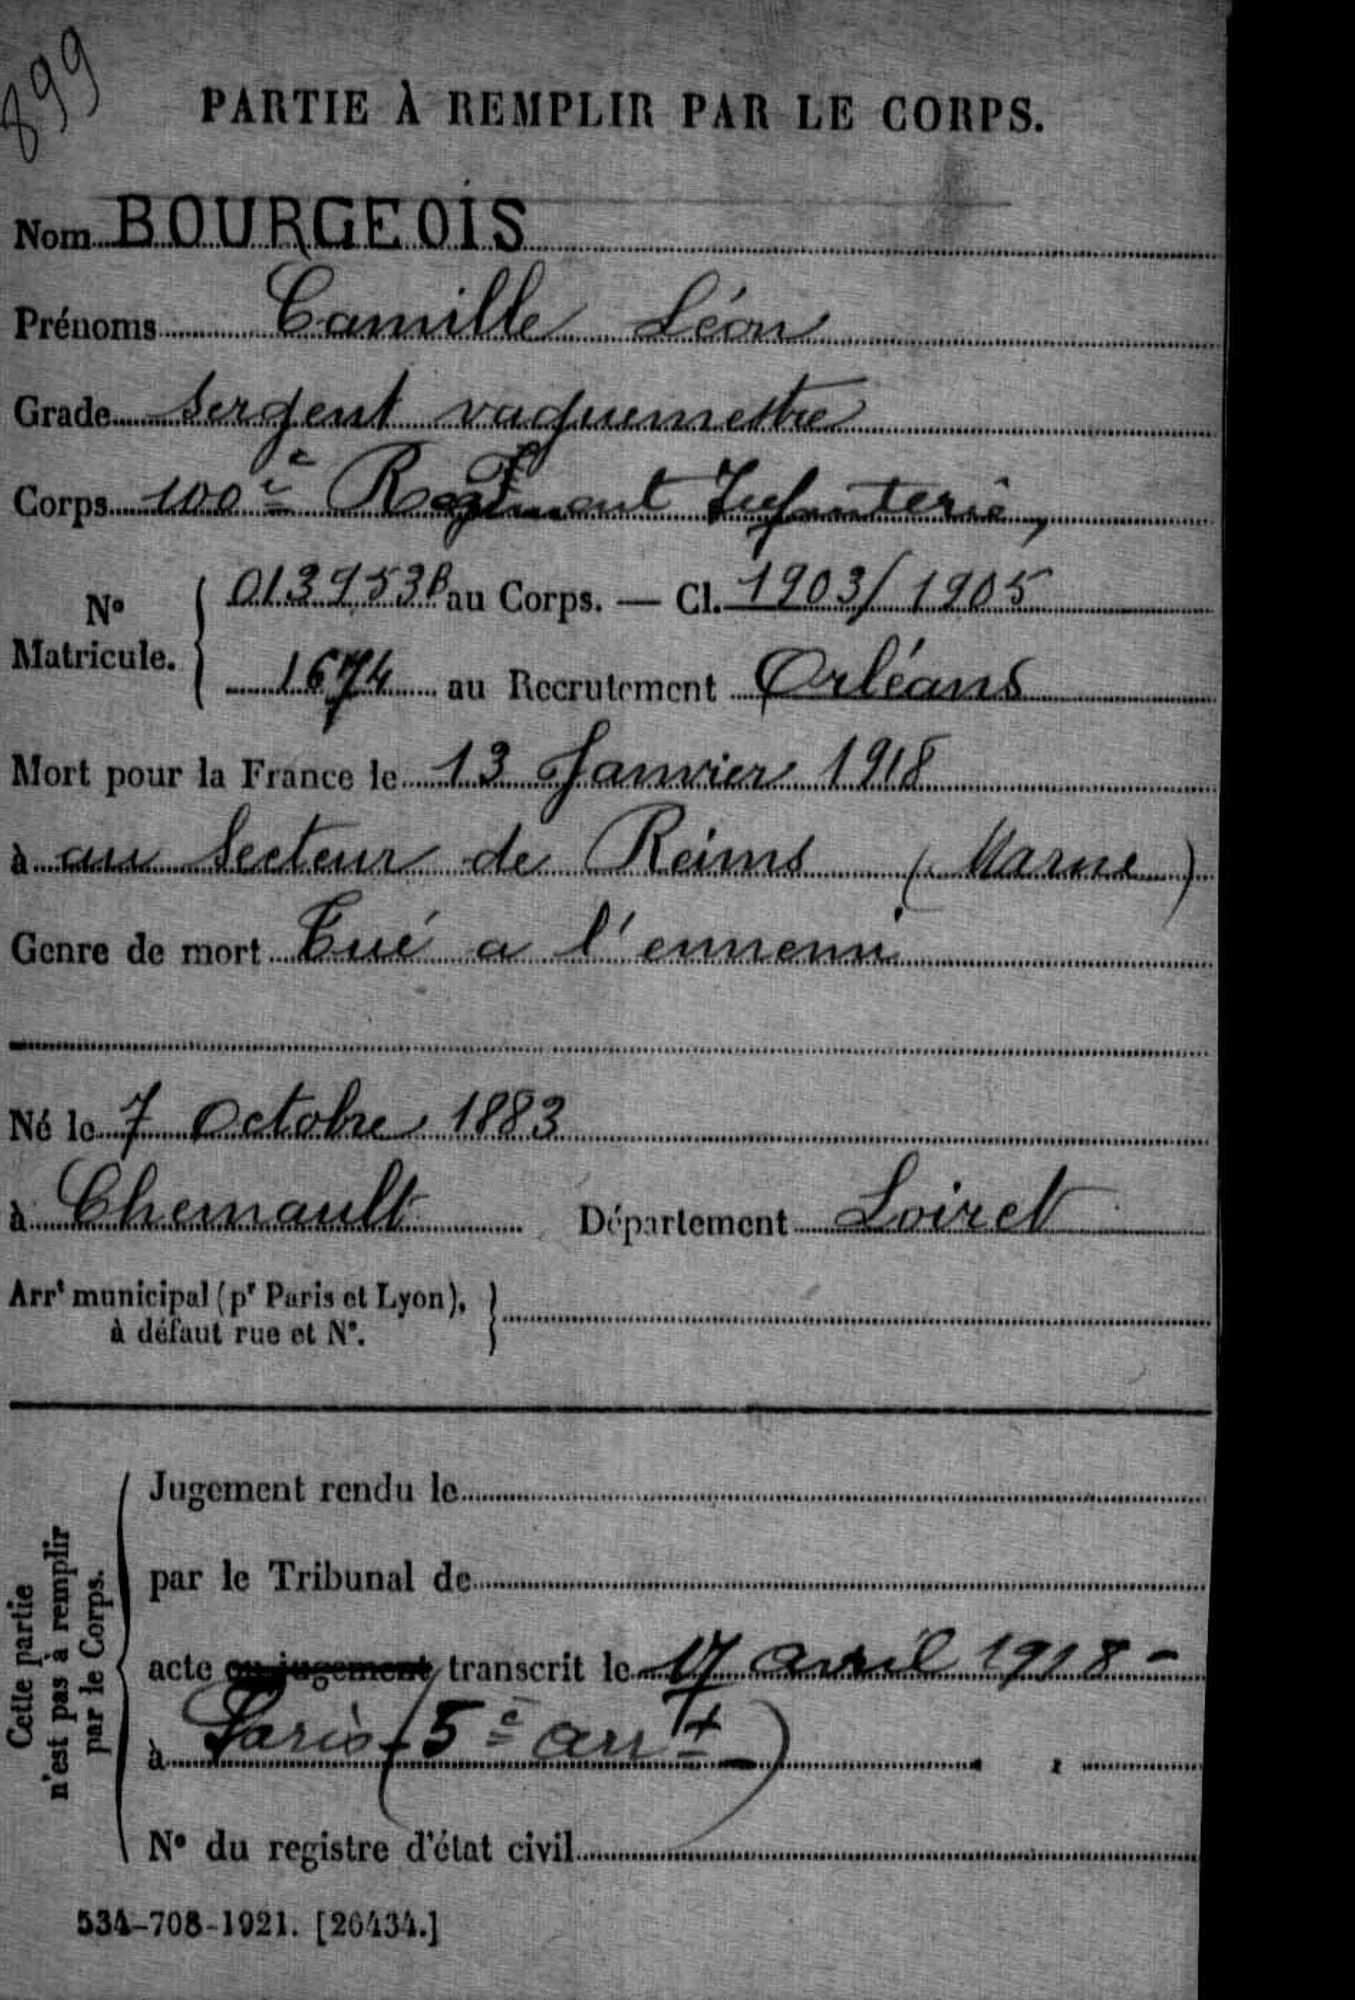 899
PARTIE À REMPLIR PAR LE CORPS.
Nom BOURGEOIS
Prénoms Camille Léon
Grade Sergent vaguemestre
Corps 100e Regiment Infanterie,
No Matricule. { 013953B au Corps. — Cl. 1903/1905
1674 au Recrutement Orléans
Mort pour la France le 13 Janvier 1918
à au Secteur de Reims (Marne)
Genre de mort Tué a l'ennemi
Né le 7 Octobre 1883
à Chemault Département Loiret
Arrt municipal (pr Paris et Lyon), }
à défaut rue et No.
Cette partie
n'est pas à remplir
par le Corps.
Jugement rendu le
par le Tribunal de
acte ou jugement transcrit le 17 avril 1918 -
à Paris (5e arrt)
No du registre d'état civil
534-708-1921. [26434.]